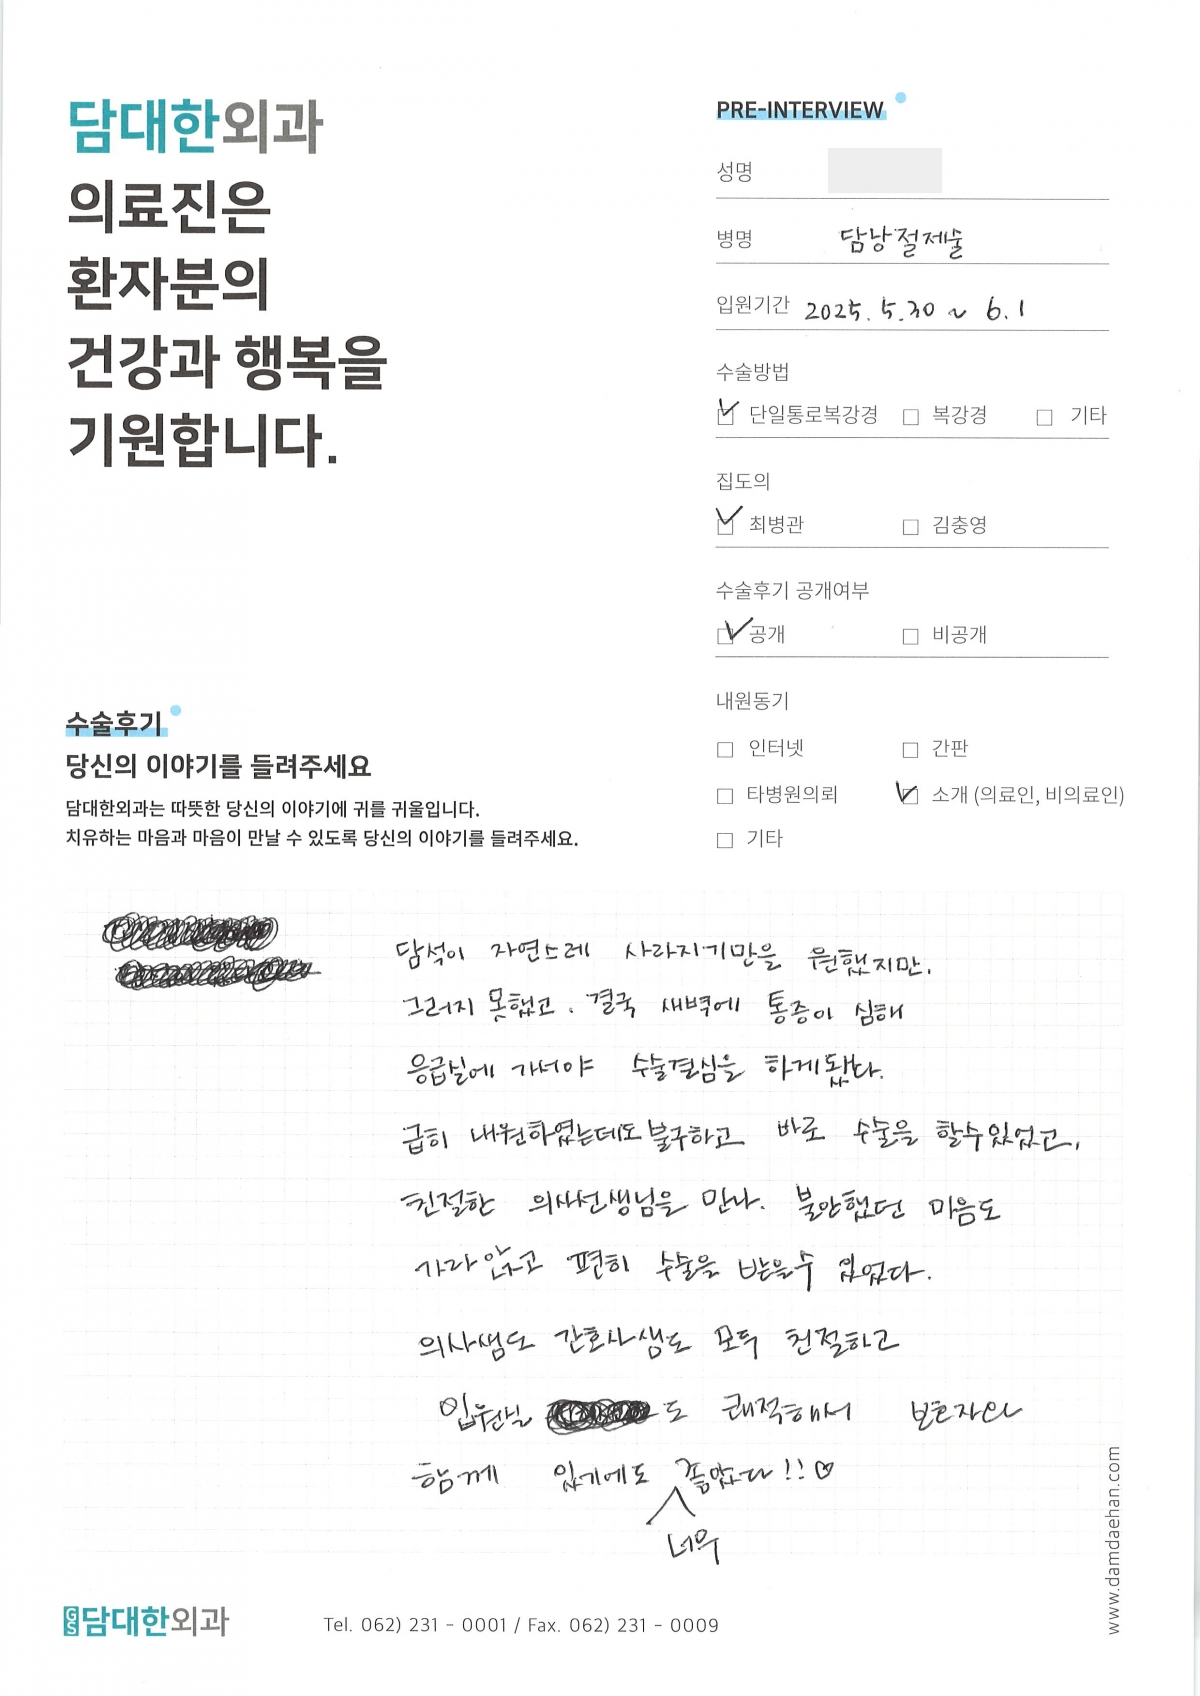 담대한외과
의료진은
환자분의
건강과 행복을
기원합니다.
PRE-INTERVIEW
성명
병명 담낭절제술
입원기간 2025. 5.30 ~ 6.1
수술방법
단일통로복강경 복강경 기타
집도의
최병관 김충영
수술후기 공개여부
공개 비공개
내원동기
인터넷 간판
타병원의뢰 소개 (의료인, 비의료인)
기타
수술후기
당신의 이야기를 들려주세요
담대한외과는 따뜻한 당신의 이야기에 귀를 귀울입니다.
치유하는 마음과 마음이 만날 수 있도록 당신의 이야기를 들려주세요.
담석이 자연스레 사라지기만을 원했지만.
그러지 못했고. 결국 새벽에 통증이 심해
응급실에 가서야 수술결심을 하게됐다.
급히 내원하였는데도 불구하고 바로 수술을 할수있었고,
친절한 의사선생님을 만나. 불안했던 마음도
가라앉고 편히 수술을 받을수 있었다.
의사쌤도 간호사쌤도 모두 친절하고
입원실 도 쾌적해서 보호자와
함께 있기에도 좋았다!!♡
너무
GS담대한외과
Tel. 062) 231 - 0001 / Fax. 062) 231 - 0009
www.damdaehan.com